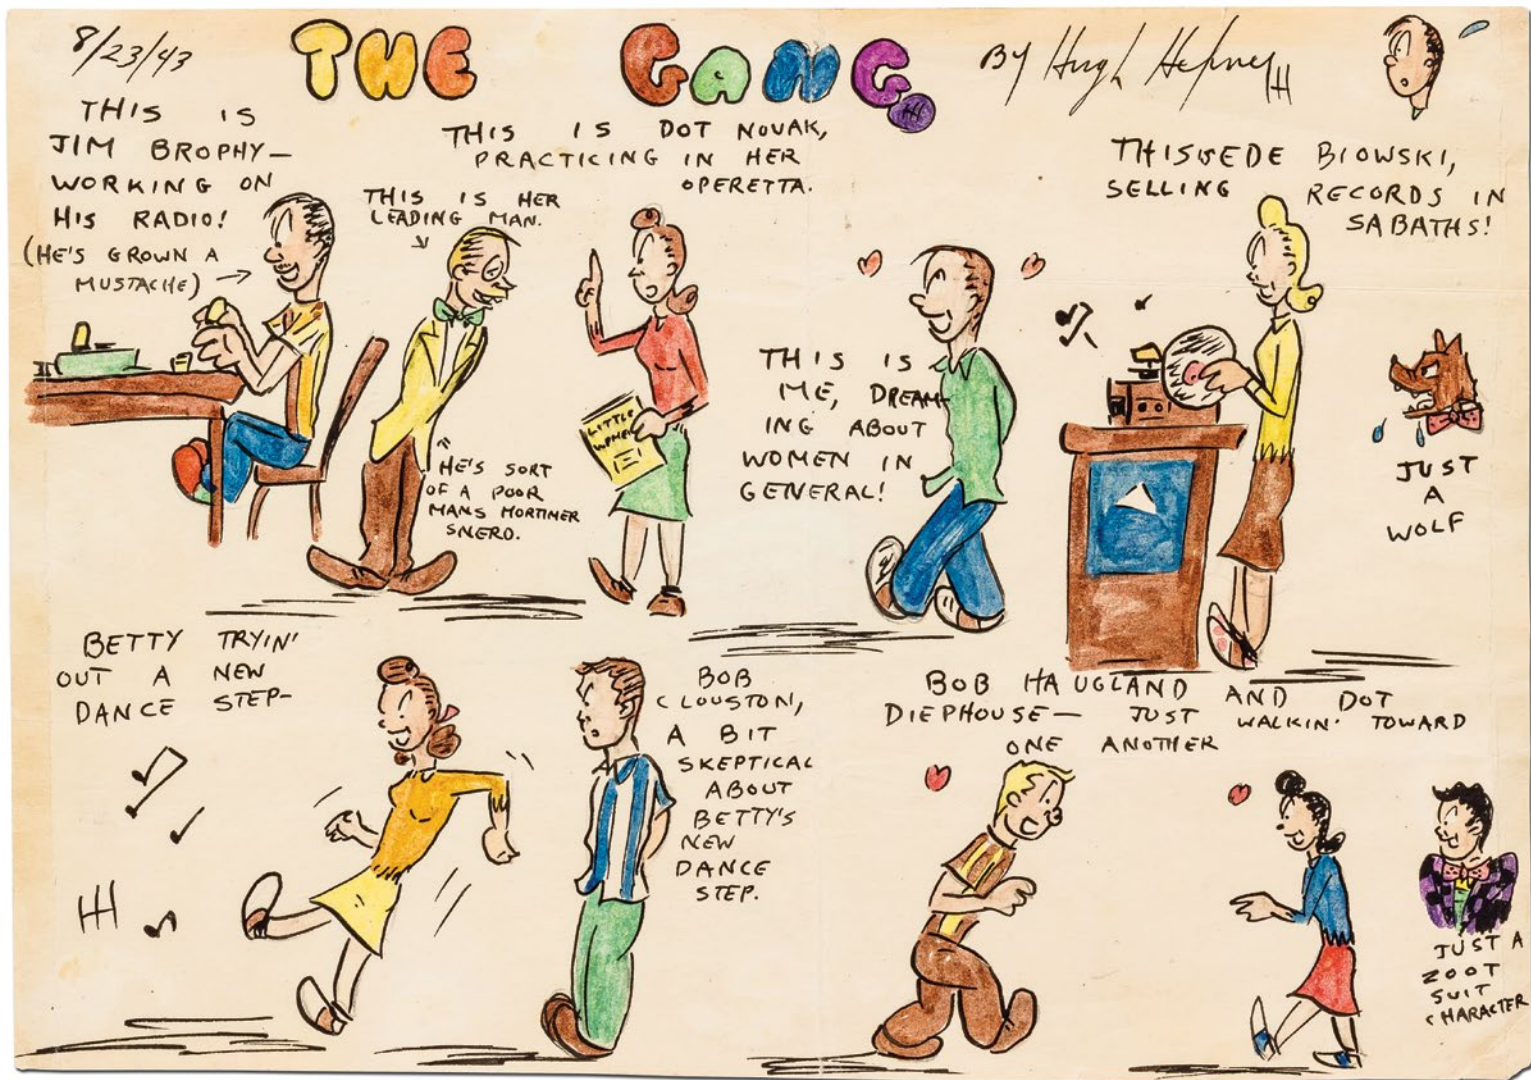 8/23/43
THE GANG
HH
By Hugh Hefner
HH
THIS IS
JIM BROPHY—
WORKING ON
HIS RADIO!
(HE'S GROWN A
MUSTACHE) →
THIS IS HER
LEADING MAN.
THIS IS DOT NOVAK,
PRACTICING IN HER
OPERETTA.
LITTLE
WOMEN
HE'S SORT
OF A POOR
MANS MORTIMER
SNERD.
THIS IS
ME, DREAM-
ING ABOUT
WOMEN IN
GENERAL!
THIS IS EDE BIOWSKI,
SELLING RECORDS IN
SABATHS!
JUST
A
WOLF
BETTY TRYIN'
OUT A NEW
DANCE STEP-
HH
BOB
CLOUSTON,
A BIT
SKEPTICAL
ABOUT
BETTY'S
NEW
DANCE
STEP.
BOB HAUGLAND AND DOT
DIEPHOUSE— JUST WALKIN' TOWARD
ONE ANOTHER
JUST A
ZOOT
SUIT
CHARACTER